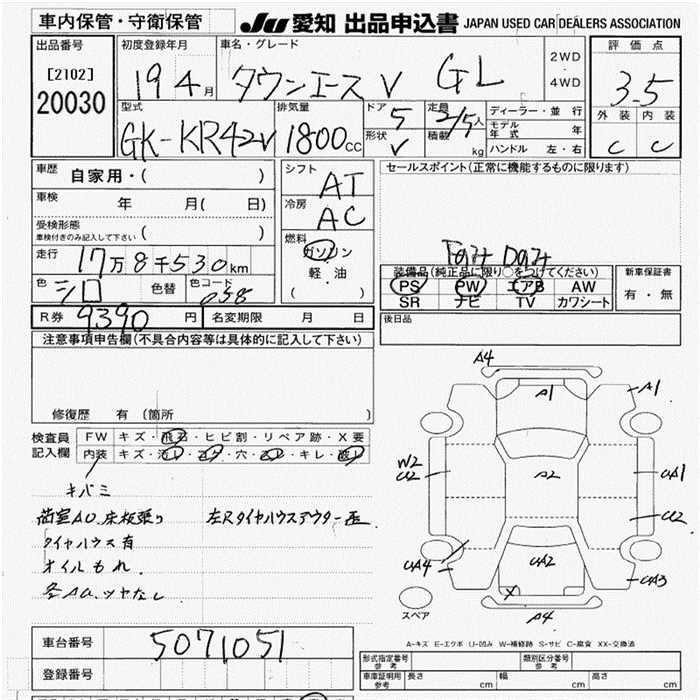 車内保管・守衛保管
JU 愛知 出品申込書 JAPAN USED CAR DEALERS ASSOCIATION
出品番号
[2102]
20030
初度登録年月
19 4月
車名・グレード
タウンエース V GL
2WD
4WD
評価点
3.5
外装 内装
C C
型式
GK-KR42V
排気量
1800cc
ドア 5
形状 V
定員 2/5人
積載 kg
ディーラー・並行
モデル年式 年
ハンドル 左・右
車歴 自家用・( )
車検 年 月( 日)
受検形態
車検付きのみ記入して下さい ( )
走行 17万8千530km
色 シロ 色替 色コード 058
シフト AT
冷房 AC
燃料
ガソリン
軽・油
( )
セールスポイント(正常に機能するものに限ります)
装備品(純正品に限り○をつけてください)
PS PW エアB AW
SR ナビ TV カワシート
新車保証書
有・無
R券 9390円 名変期限 月 日
後日品
注意事項申告欄(不具合内容等は具体的に記入して下さい)
修復歴 有(箇所 )
検査員
記入欄
FW キズ・飛石・ヒビ割・リペア跡・X要
内装 キズ・汚レ・コゲ・穴・スレ・キレ・破レ
キバミ
荷室AU 床板張り 左Rタイヤハウスアウター歪
タイヤハウス有
オイルもれ.
各AUツヤなし
A4
A1
A1
W2
U2
A2
UA1
U2
UA4
UA2
UA3
X
A4
スペア
A-キズ E-エクボ U-凹み W-補修跡 S-サビ C-腐食 XX-交換済
車台番号 5071051
登録番号
形式指定番号
参考
類別区分番号
参考
車庫証明用
参考
長さ cm 幅 cm 高さ cm